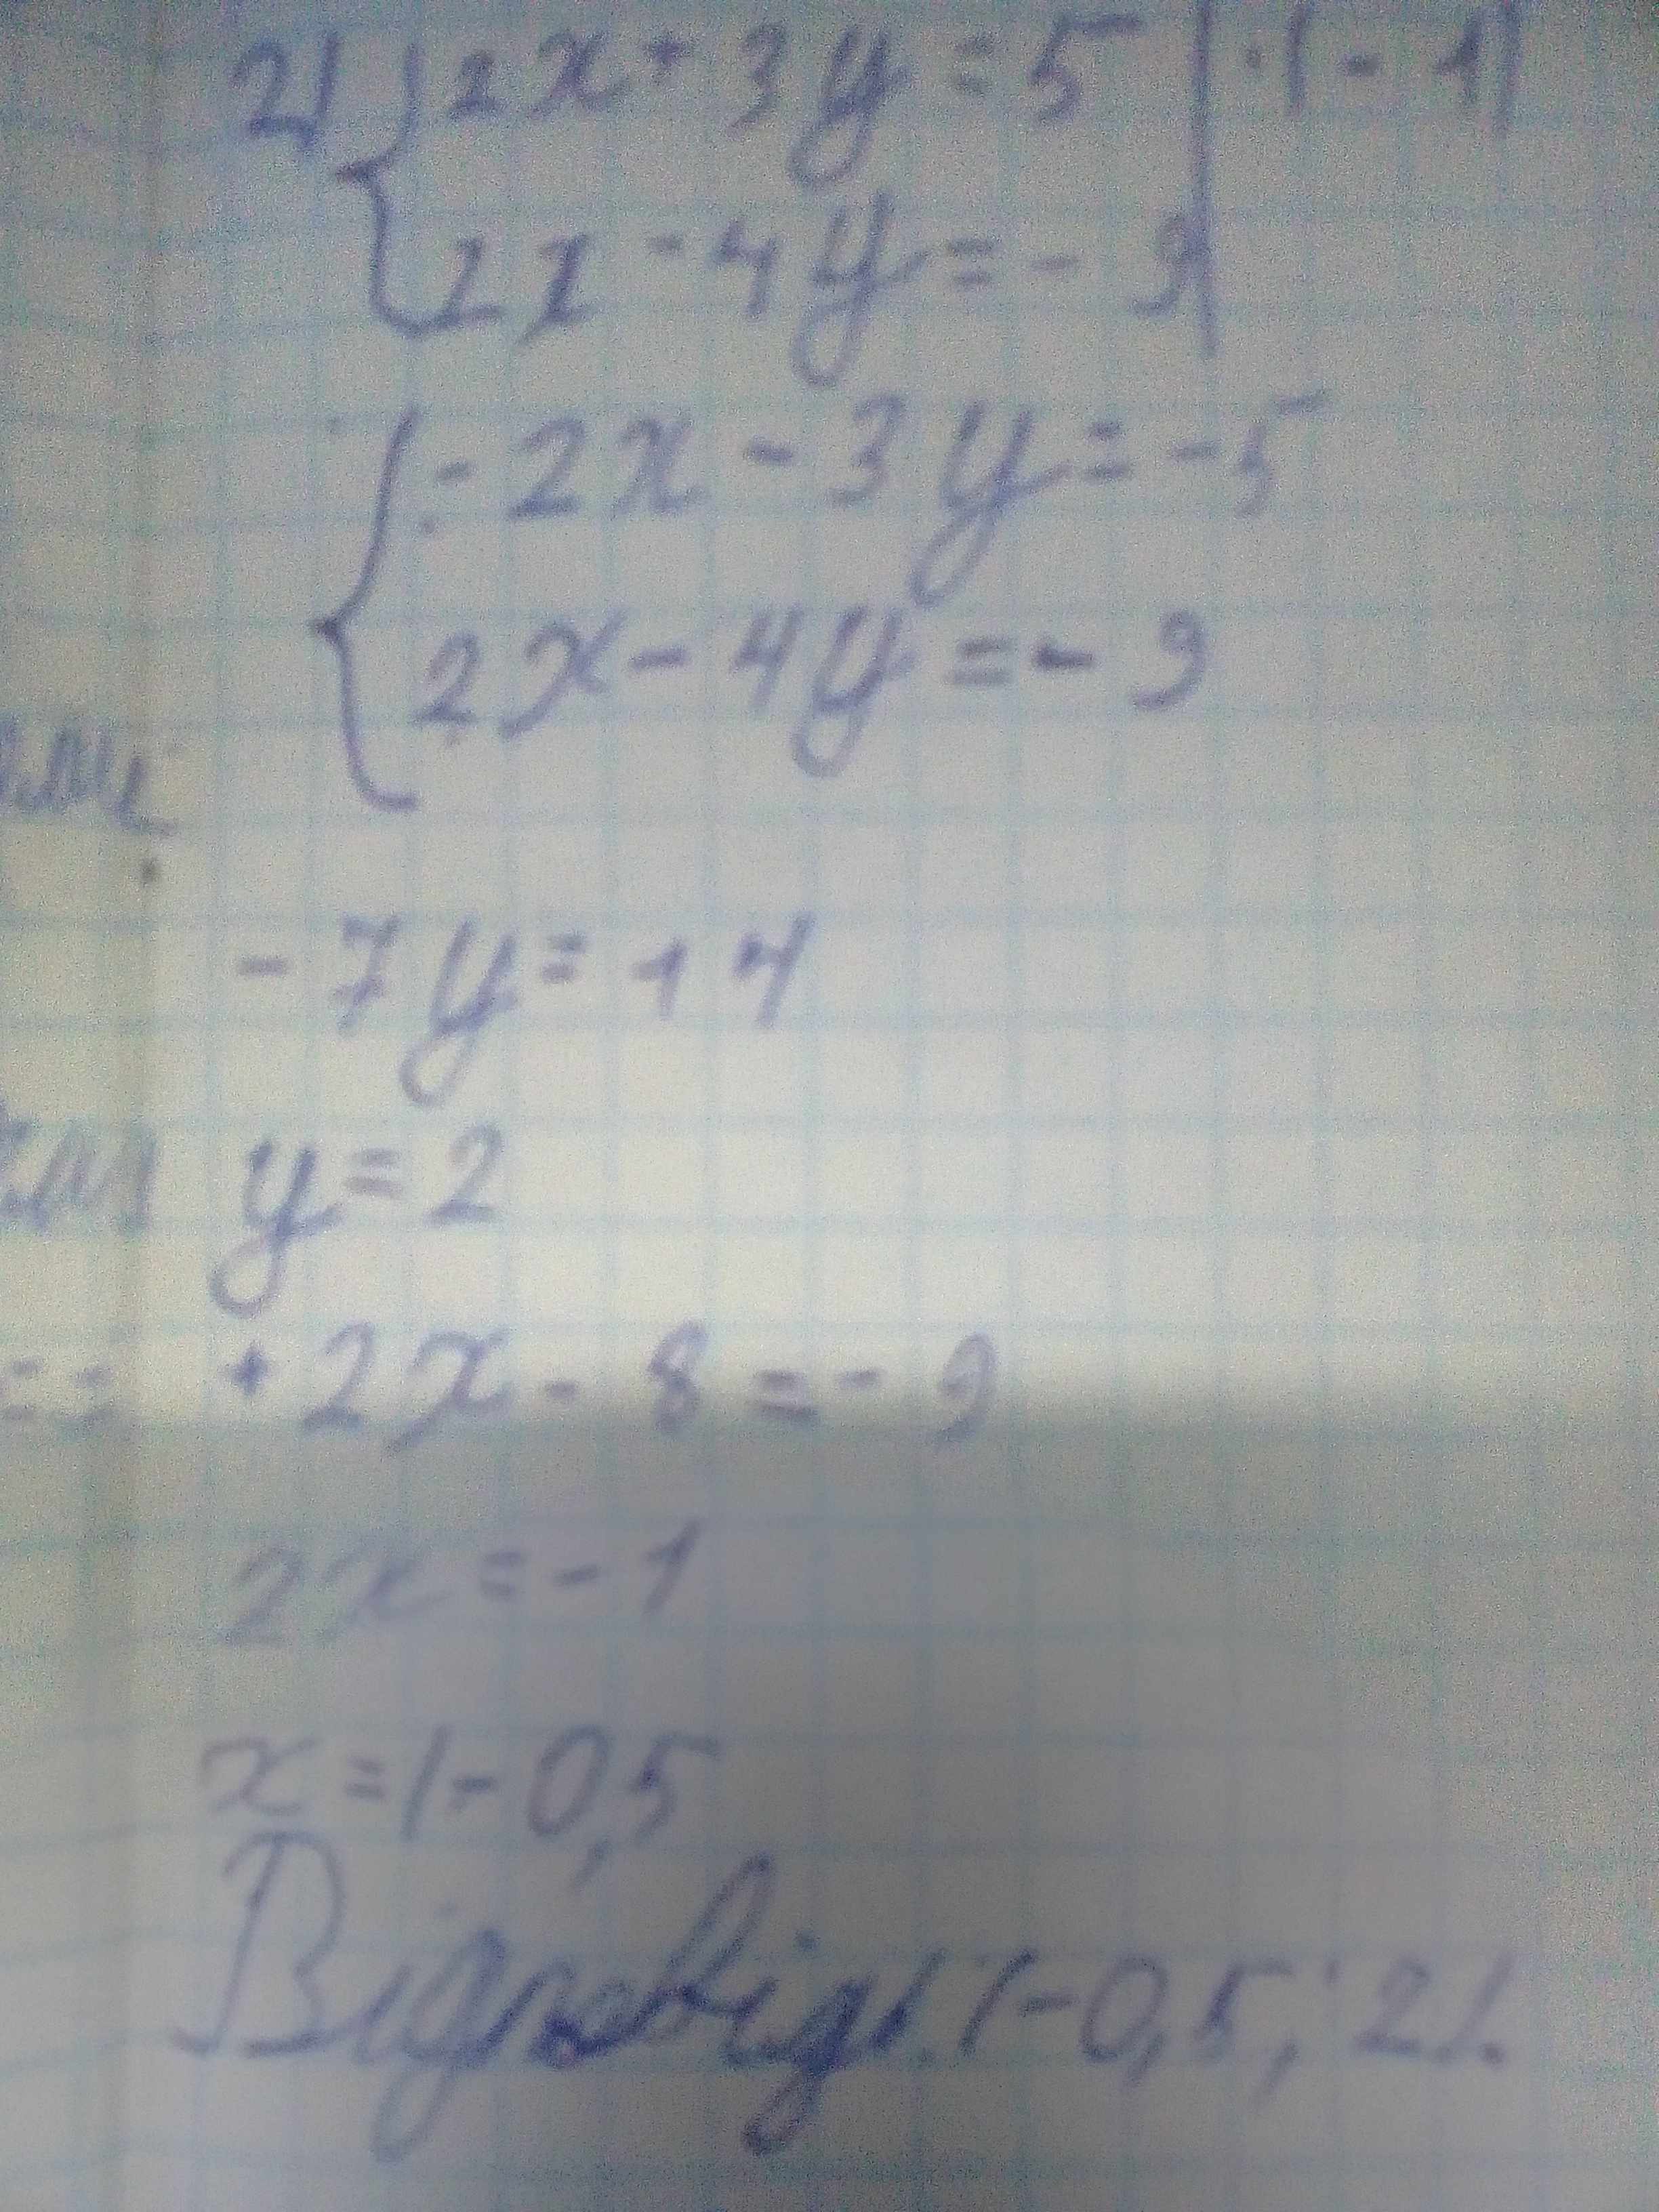 2) { 2x + 3y = 5 | · (-1)
2x - 4y = - 9
{ - 2x - 3y = - 5
2x - 4y = - 9
- 7y = - 14
y = 2
2x - 8 = - 9
2x = - 1
x = - 0,5
Відповідь: (-0,5; 2).